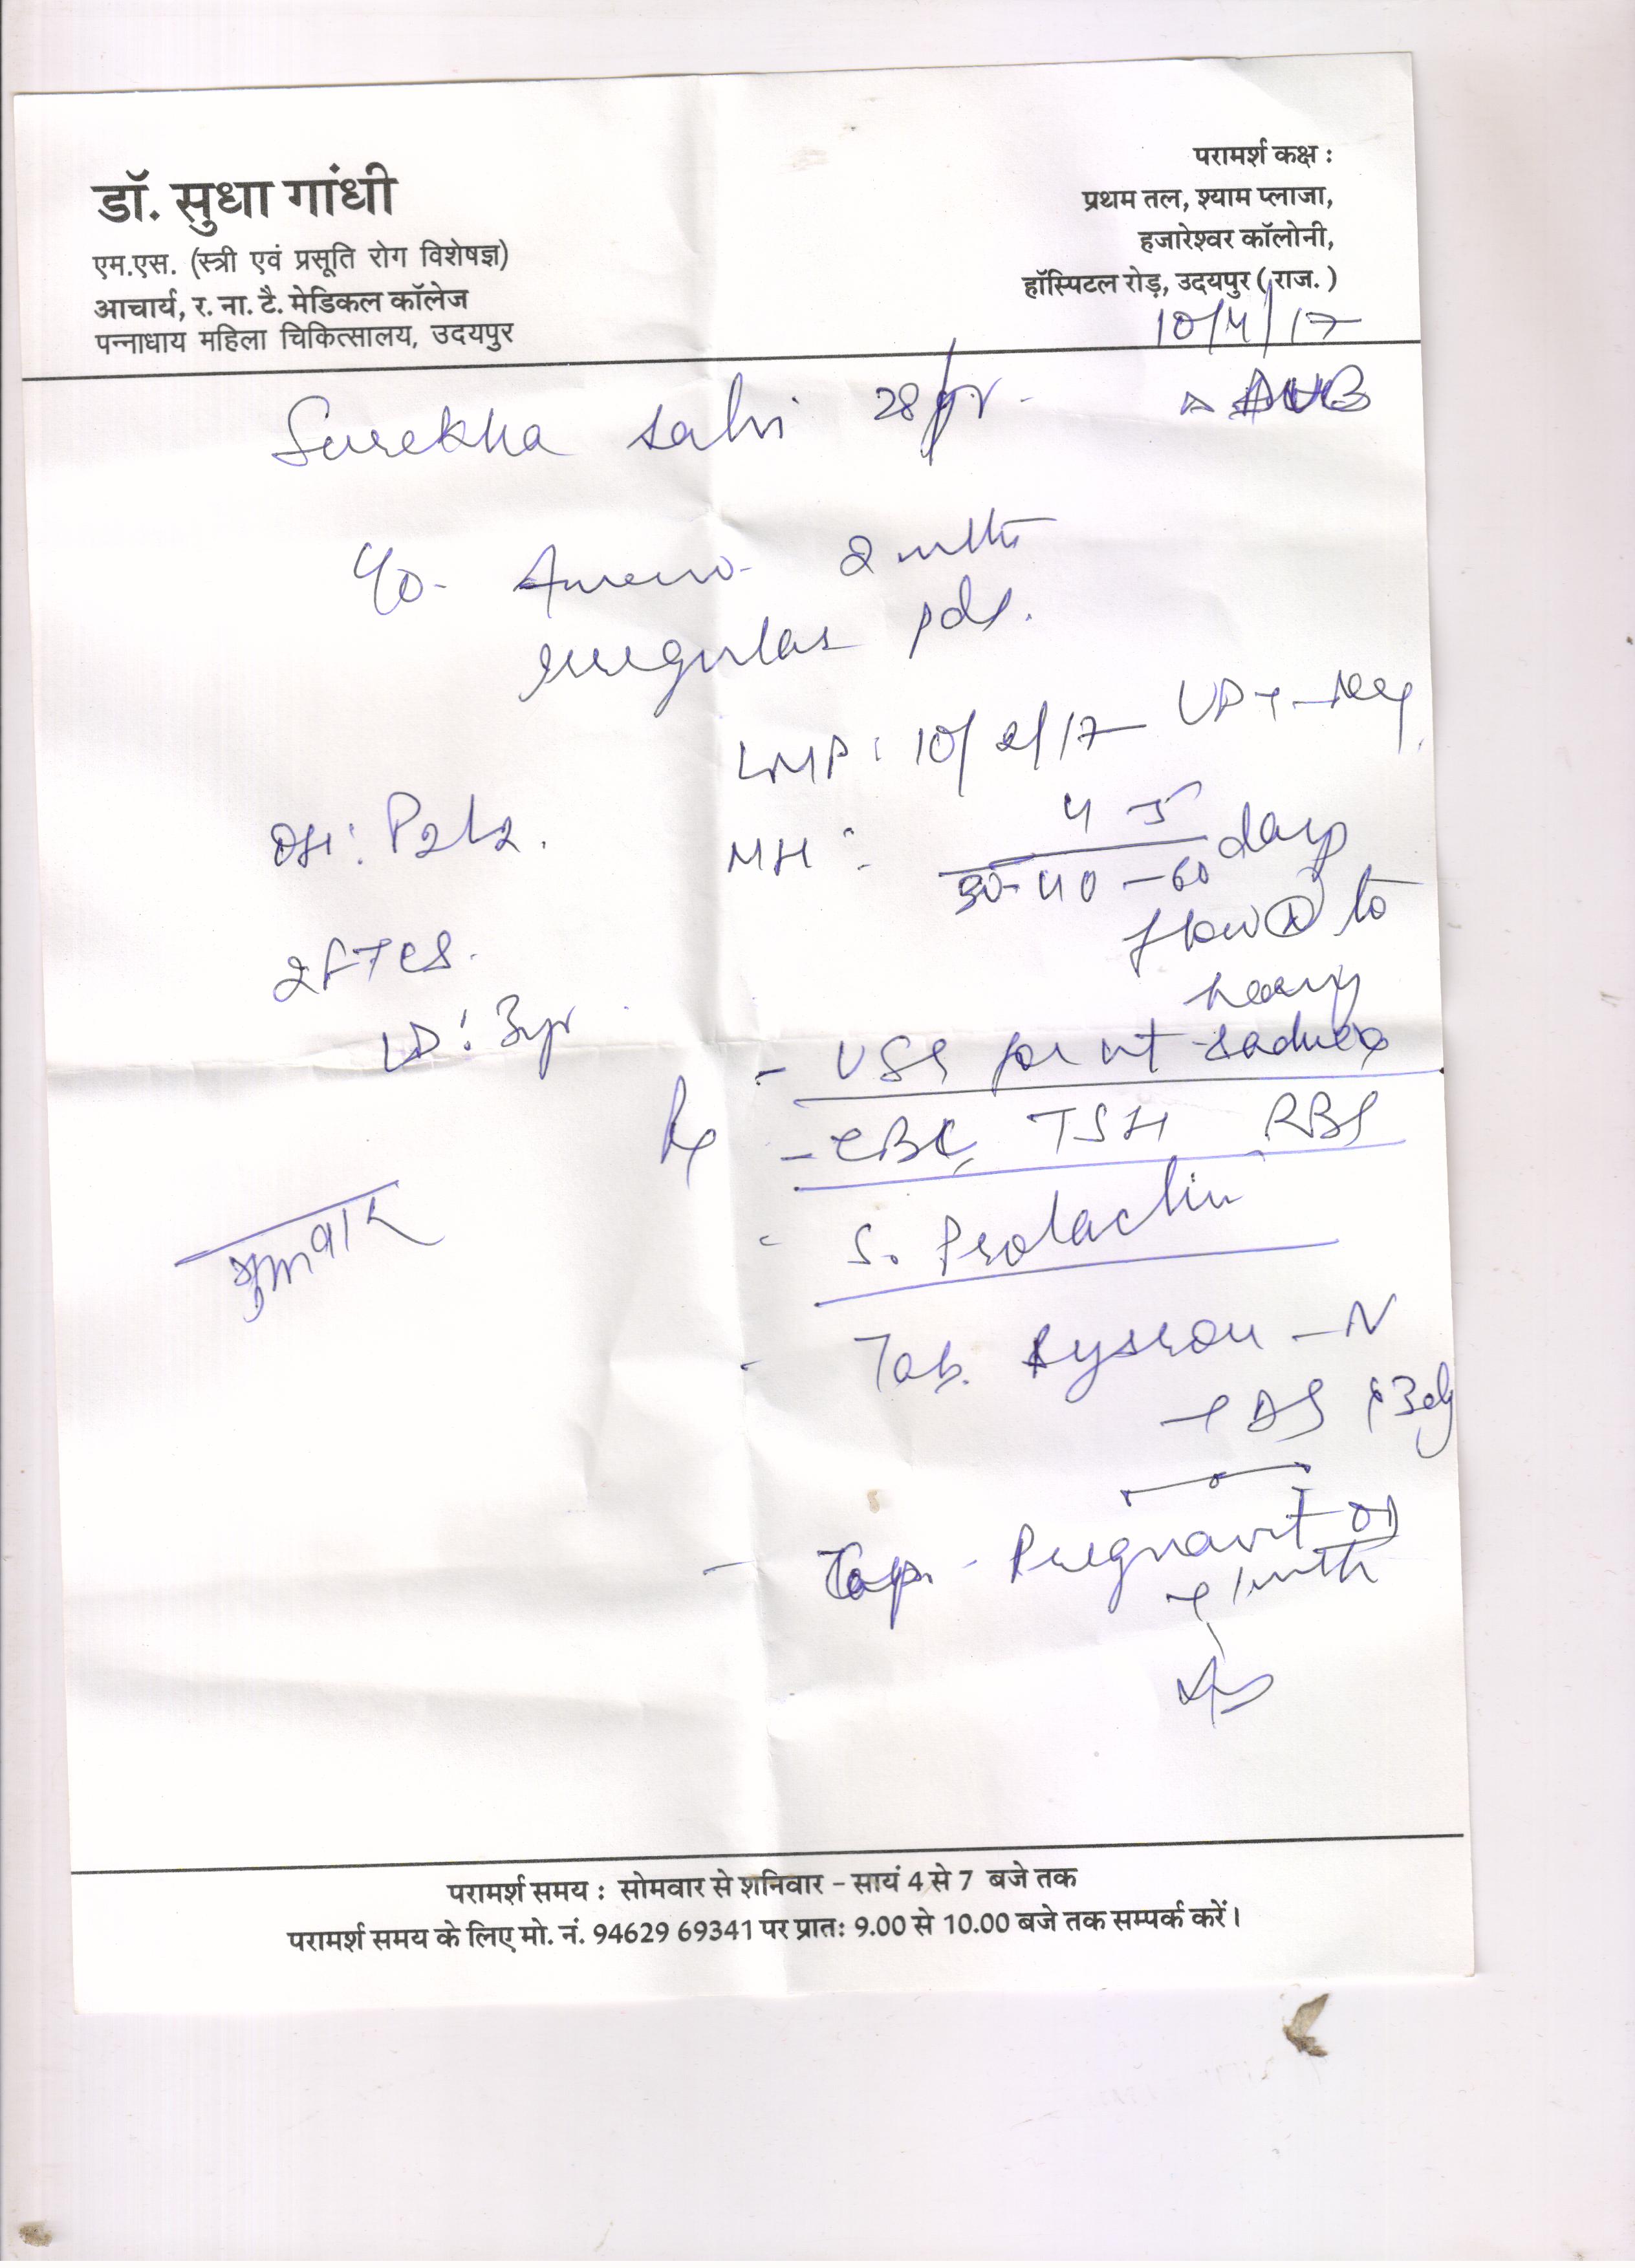 डॉ. सुधा गांधी
एम.एस. (स्त्री एवं प्रसूति रोग विशेषज्ञ)
आचार्य, र. ना. टै. मेडिकल कॉलेज
पन्नाधाय महिला चिकित्सालय, उदयपुर
परामर्श कक्ष :
प्रथम तल, श्याम प्लाजा,
हजारेश्वर कॉलोनी,
हॉस्पिटल रोड़, उदयपुर (राज.)
10/4/17
Surekha 28/yr. AUB
C/o- 2 mth
irregular pds.
LMP: 10/2/17 UPT-neg
OH: P2L2. MH: 4 5
30-40-60 days
flow (N) to
heavy
2FTCS.
LD: 3yr
- USG for ut
Rx - CBC, TSH RBS
- S. Prolactin
गुरुवार
- Tab. -N
BS
- Cap. Pregnavit OD
1 mth
परामर्श समय : सोमवार से शनिवार - सायं 4 से 7 बजे तक
परामर्श समय के लिए मो. नं. 94629 69341 पर प्रातः 9.00 से 10.00 बजे तक सम्पर्क करें।